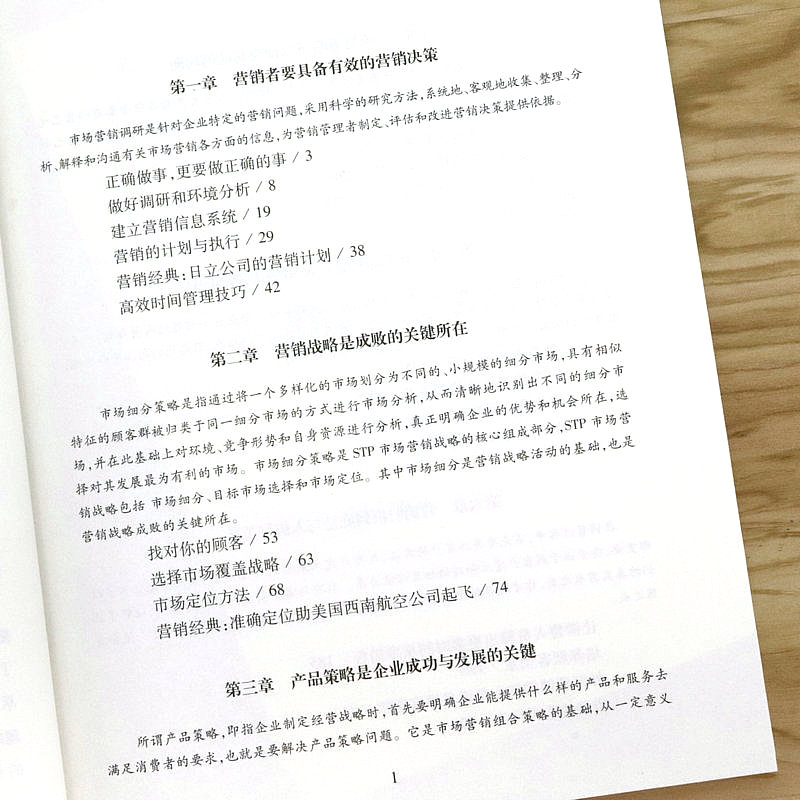 第一章 营销者要具备有效的营销决策
市场营销调研是针对企业特定的营销问题,采用科学的研究方法,系统地、客观地收集、整理、分
析、解释和沟通有关市场营销各方面的信息,为营销管理者制定、评估和改进营销决策提供依据。
正确做事,更要做正确的事 / 3
做好调研和环境分析 / 8
建立营销信息系统 / 19
营销的计划与执行 / 29
营销经典:日立公司的营销计划 / 38
高效时间管理技巧 / 42
第二章 营销战略是成败的关键所在
市场细分策略是指通过将一个多样化的市场划分为不同的、小规模的细分市场,具有相似
特征的顾客群被归类于同一细分市场的方式进行市场分析,从而清晰地识别出不同的细分市
场,并在此基础上对环境、竞争形势和自身资源进行分析,真正明确企业的优势和机会所在,选
择对其发展最为有利的市场。市场细分策略是 STP 市场营销战略的核心组成部分,STP 市场营
销战略包括 市场细分、目标市场选择和市场定位。其中市场细分是营销战略活动的基础,也是
营销战略成败的关键所在。
找对你的顾客 / 53
选择市场覆盖战略 / 63
市场定位方法 / 68
营销经典:准确定位助美国西南航空公司起飞 / 74
第三章 产品策略是企业成功与发展的关键
所谓产品策略,即指企业制定经营战略时,首先要明确企业能提供什么样的产品和服务去
满足消费者的要求,也就是要解决产品策略问题。它是市场营销组合策略的基础,从一定意义
1